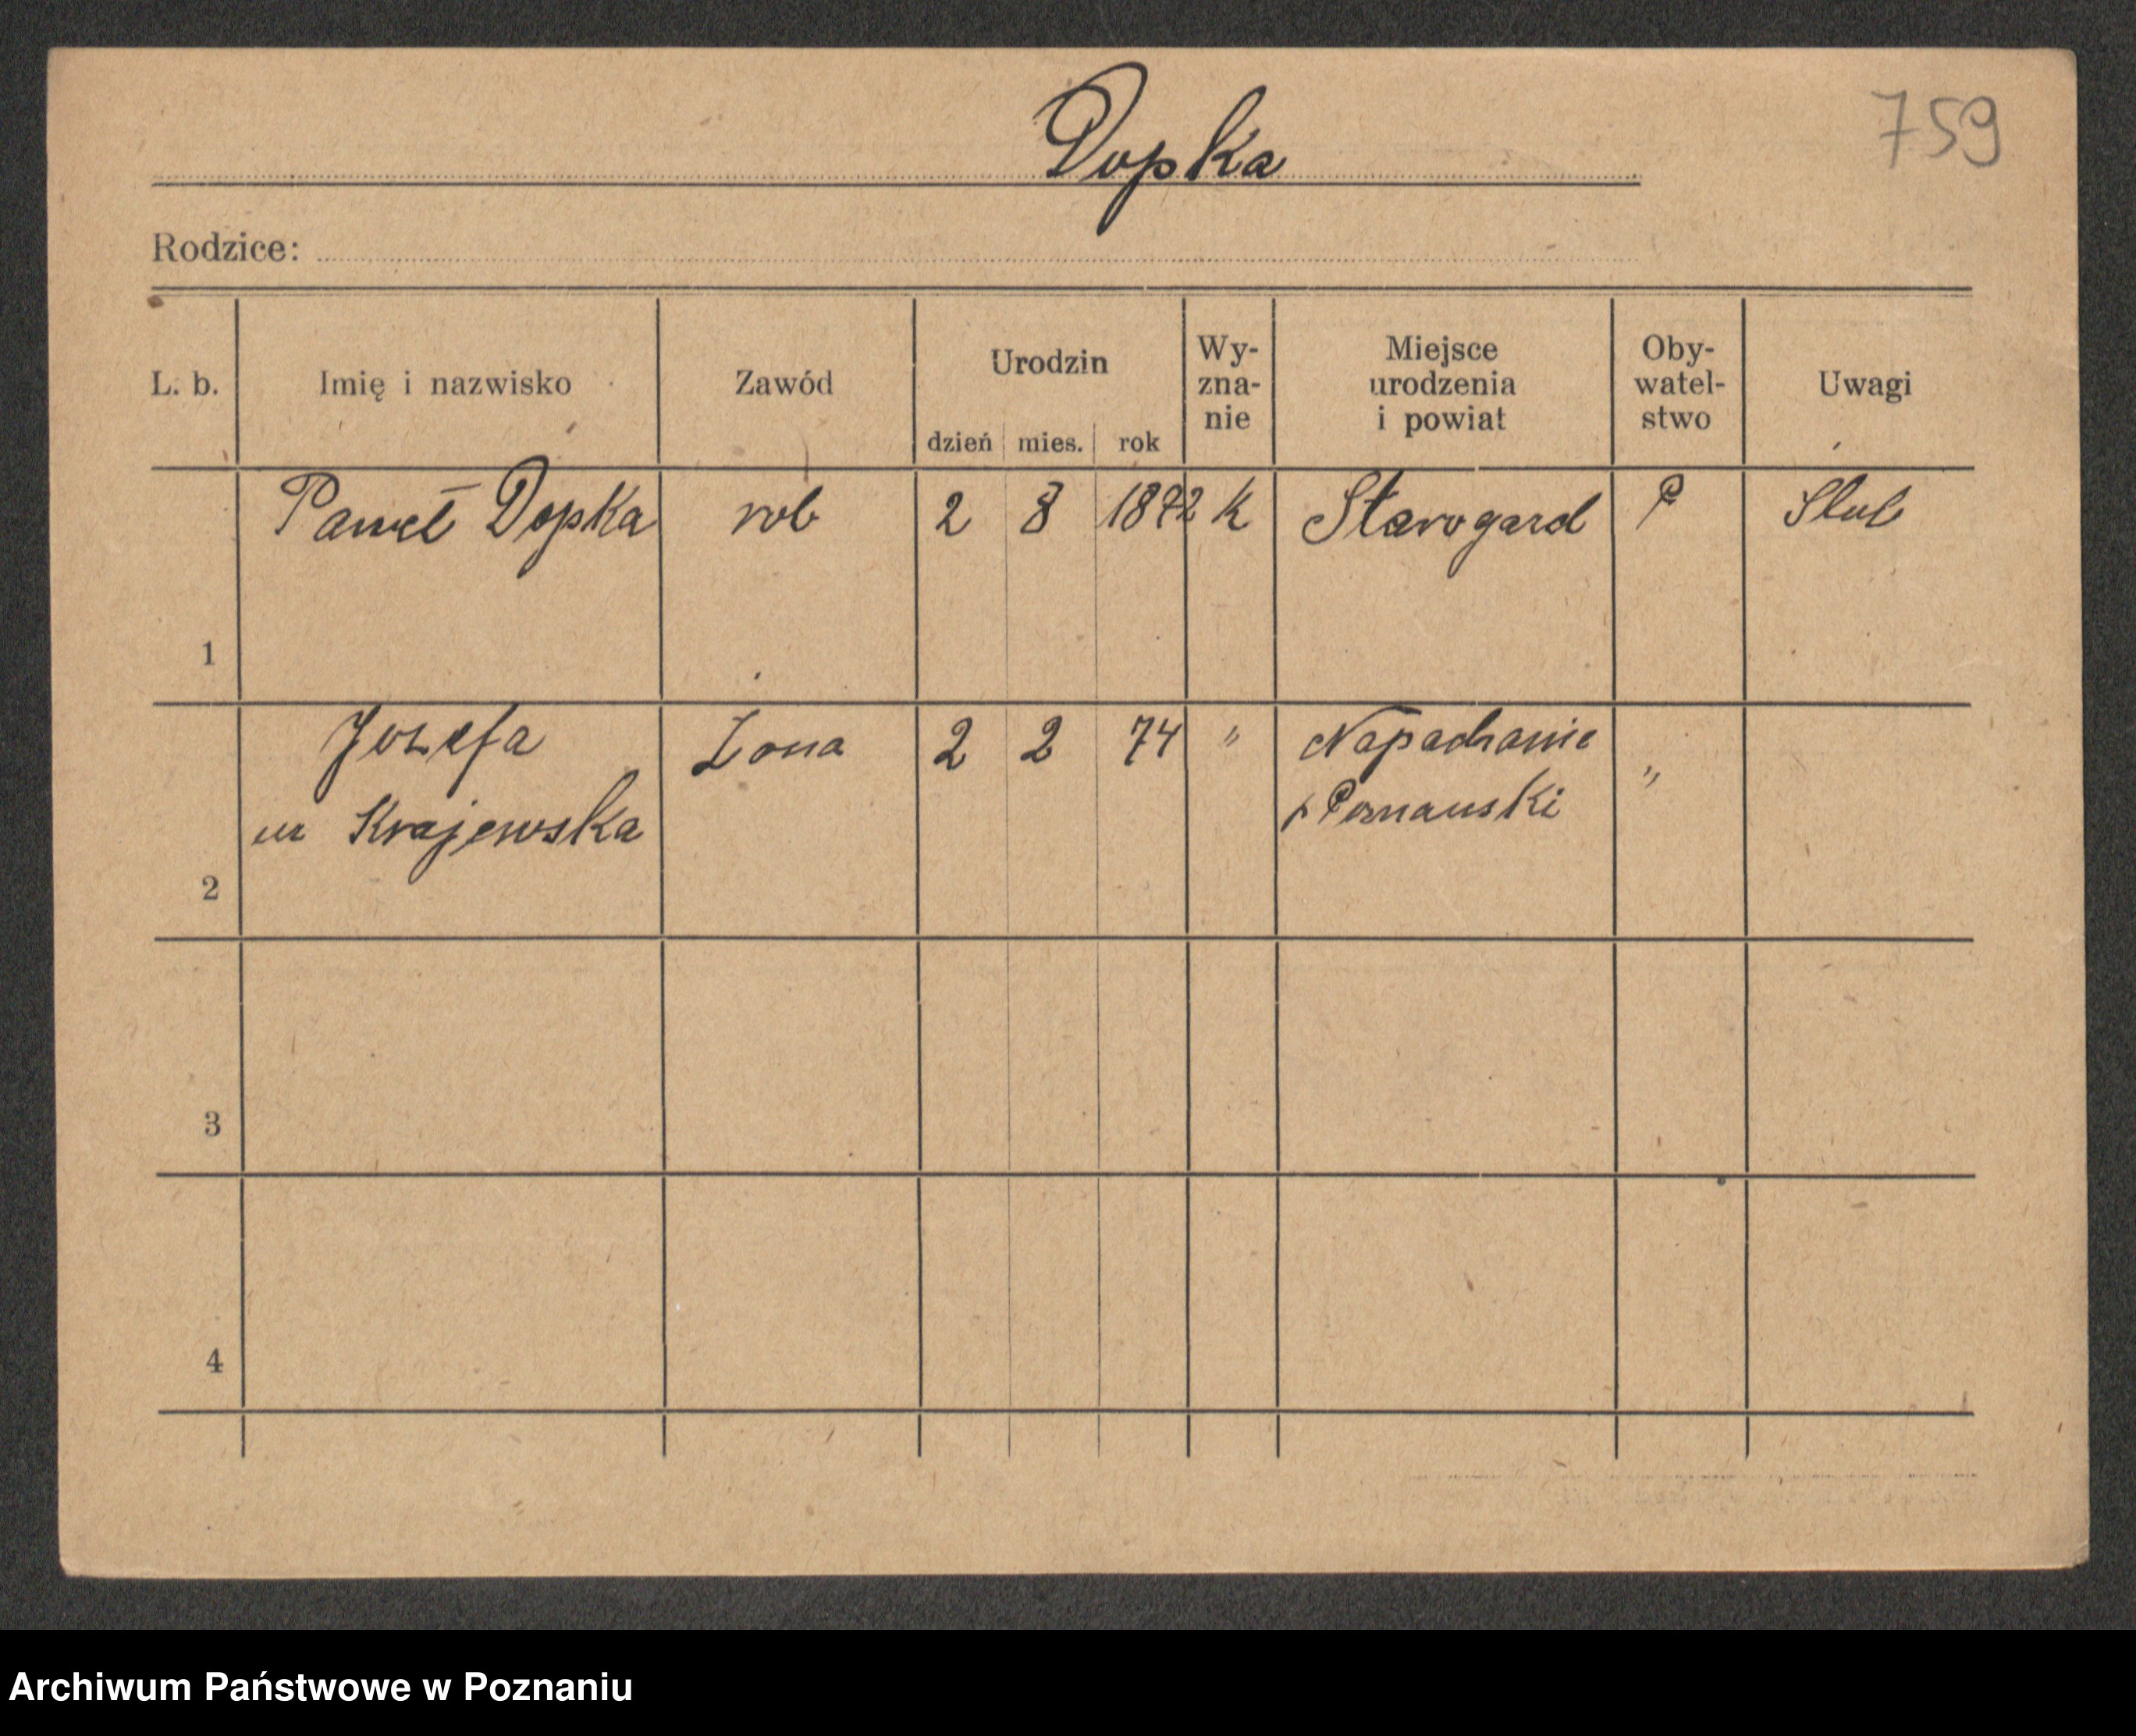 Dopka
759
Rodzice:
L. b. Imię i nazwisko Zawód Urodzin dzień mies. rok Wy-zna-nie Miejsce urodzenia i powiat Oby-watel-stwo Uwagi
1 Paweł Dopka rob 2 8 1872 k Starogard P Slub
2 Jozefa Żona 2 2 74 " Napachanie "
ur Krajewska p Poznanski
3
4
Archiwum Państwowe w Poznaniu